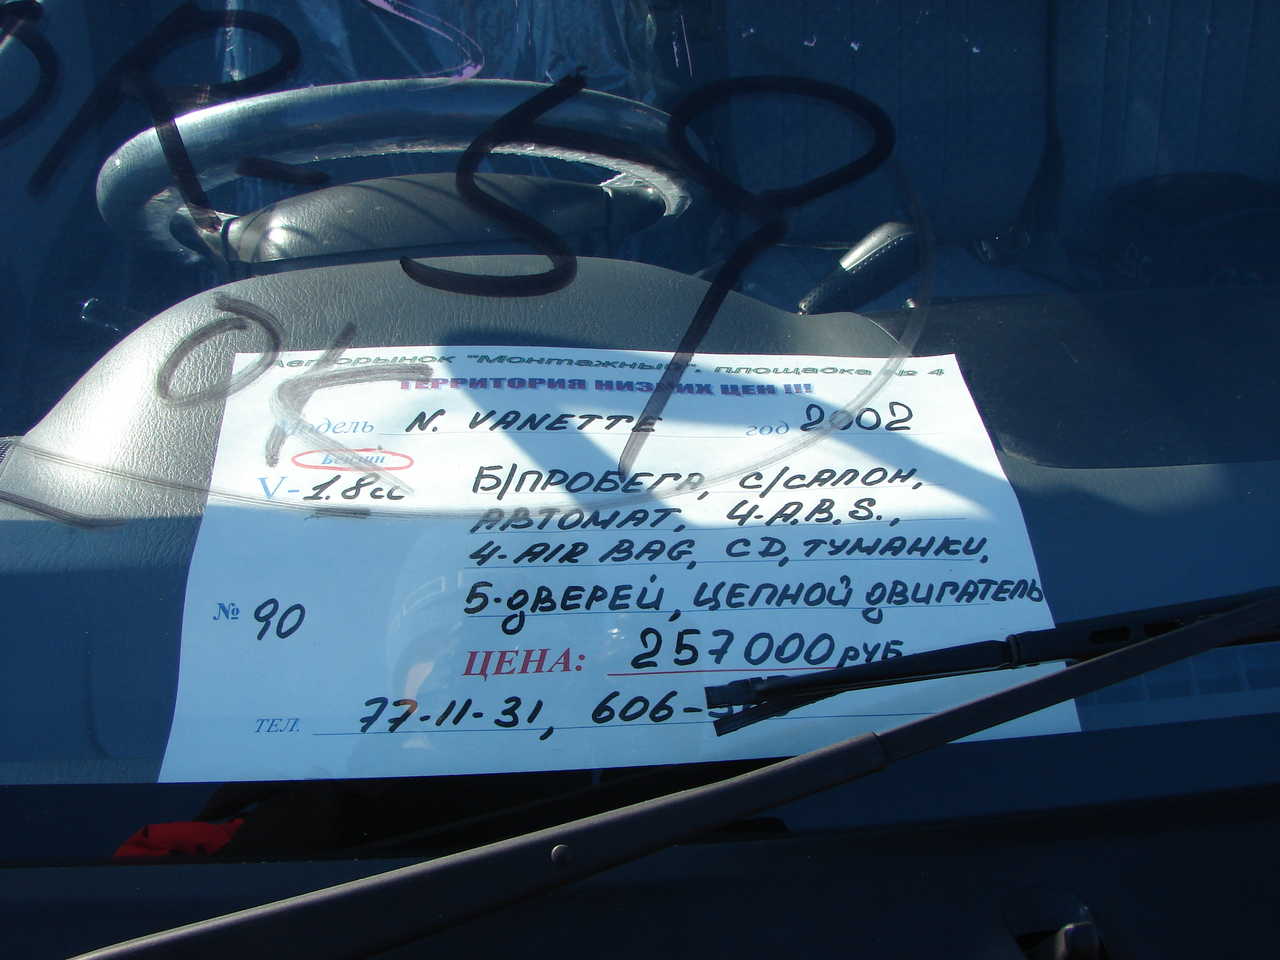 59
OK
Авторынок "Монтажный", площадка № 4
ТЕРРИТОРИЯ НИЗКИХ ЦЕН !!!
Модель N. VANETTE год 2002
Бензин
V- 1.8 cc Б/ПРОБЕГА, С/САЛОН,
АВТОМАТ, 4-A.B.S.,
4-AIR BAG, CD, ТУМАНКИ,
5-ДВЕРЕЙ, ЦЕПНОЙ ДВИГАТЕЛЬ
№ 90
ЦЕНА: 257000 РУБ.
ТЕЛ. 77-11-31, 606-